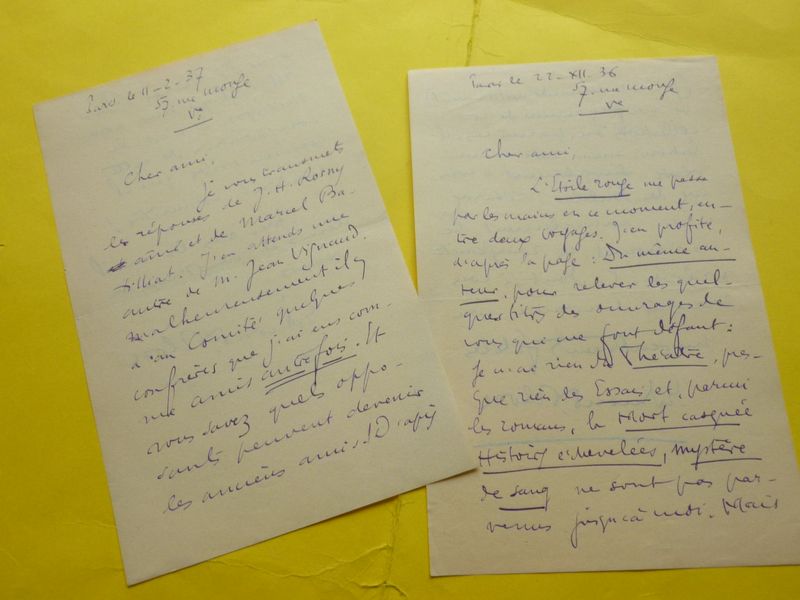 Paris le 11-2-37
57. rue Monge
Ve
Cher ami,
Je vous transmets
les réponses de J. H. Rosny
aîné et de Marcel Ba-
tilliat. J'en attends une
autre de M. Jean Vignaud.
Malheureusement il y
a au Comité quelques
confrères que j'ai eus com-
me amis autrefois. Et
vous savez quels oppo-
sants peuvent devenir
les anciens amis! D'après
Paris le 22-XII-36
57. rue Monge
Ve
Cher ami,
L'Etoile rouge me passe
par les mains en ce moment, en-
tre deux voyages. J'en profite,
d'après la page: Du même au-
teur, pour relever les quel-
ques titres des ouvrages de
vous qui me font défaut:
je n'ai rien du Théâtre, pres-
que rien des Essais et, parmi
les romans, la Mort casquée
Histoires échevelées, Mystère
de sang ne sont pas par-
venus jusqu'à moi. Mais